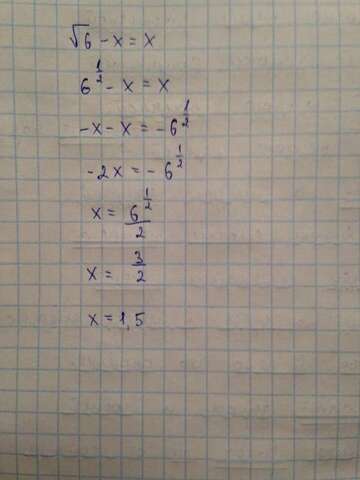 √6 - x = x
6^(1/2) - x = x
-x - x = -6^(1/2)
-2x = -6^(1/2)
x = 6^(1/2)/2
x = 3/2
x = 1,5